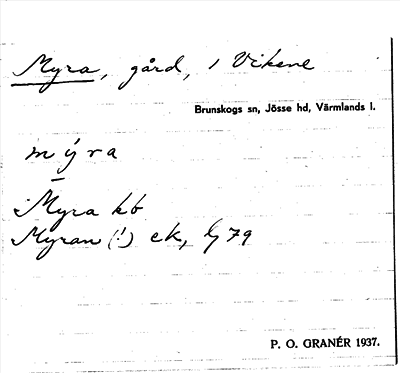 Myra, gård, i Vikene
Brunskogs sn, Jösse hd, Värmlands l.
mýra
Myra kb
Myran (!) ek, lj 79
P. O. GRANÉR 1937.